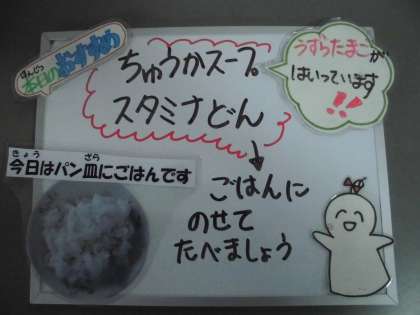 ほんじつ
本日のおすすめ
ちゅうかスープ
スタミナどん
うずらたまごが
はいっています
!!
きょう ざら
今日はパン皿にごはんです
ごはんに
のせて
たべましょう